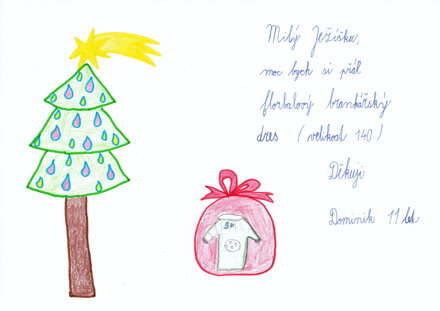 Milý Ježíšku,
moc bych si přál
florbalový brankářský
dres (velikost 140)
Děkuji
Dominik 11 let